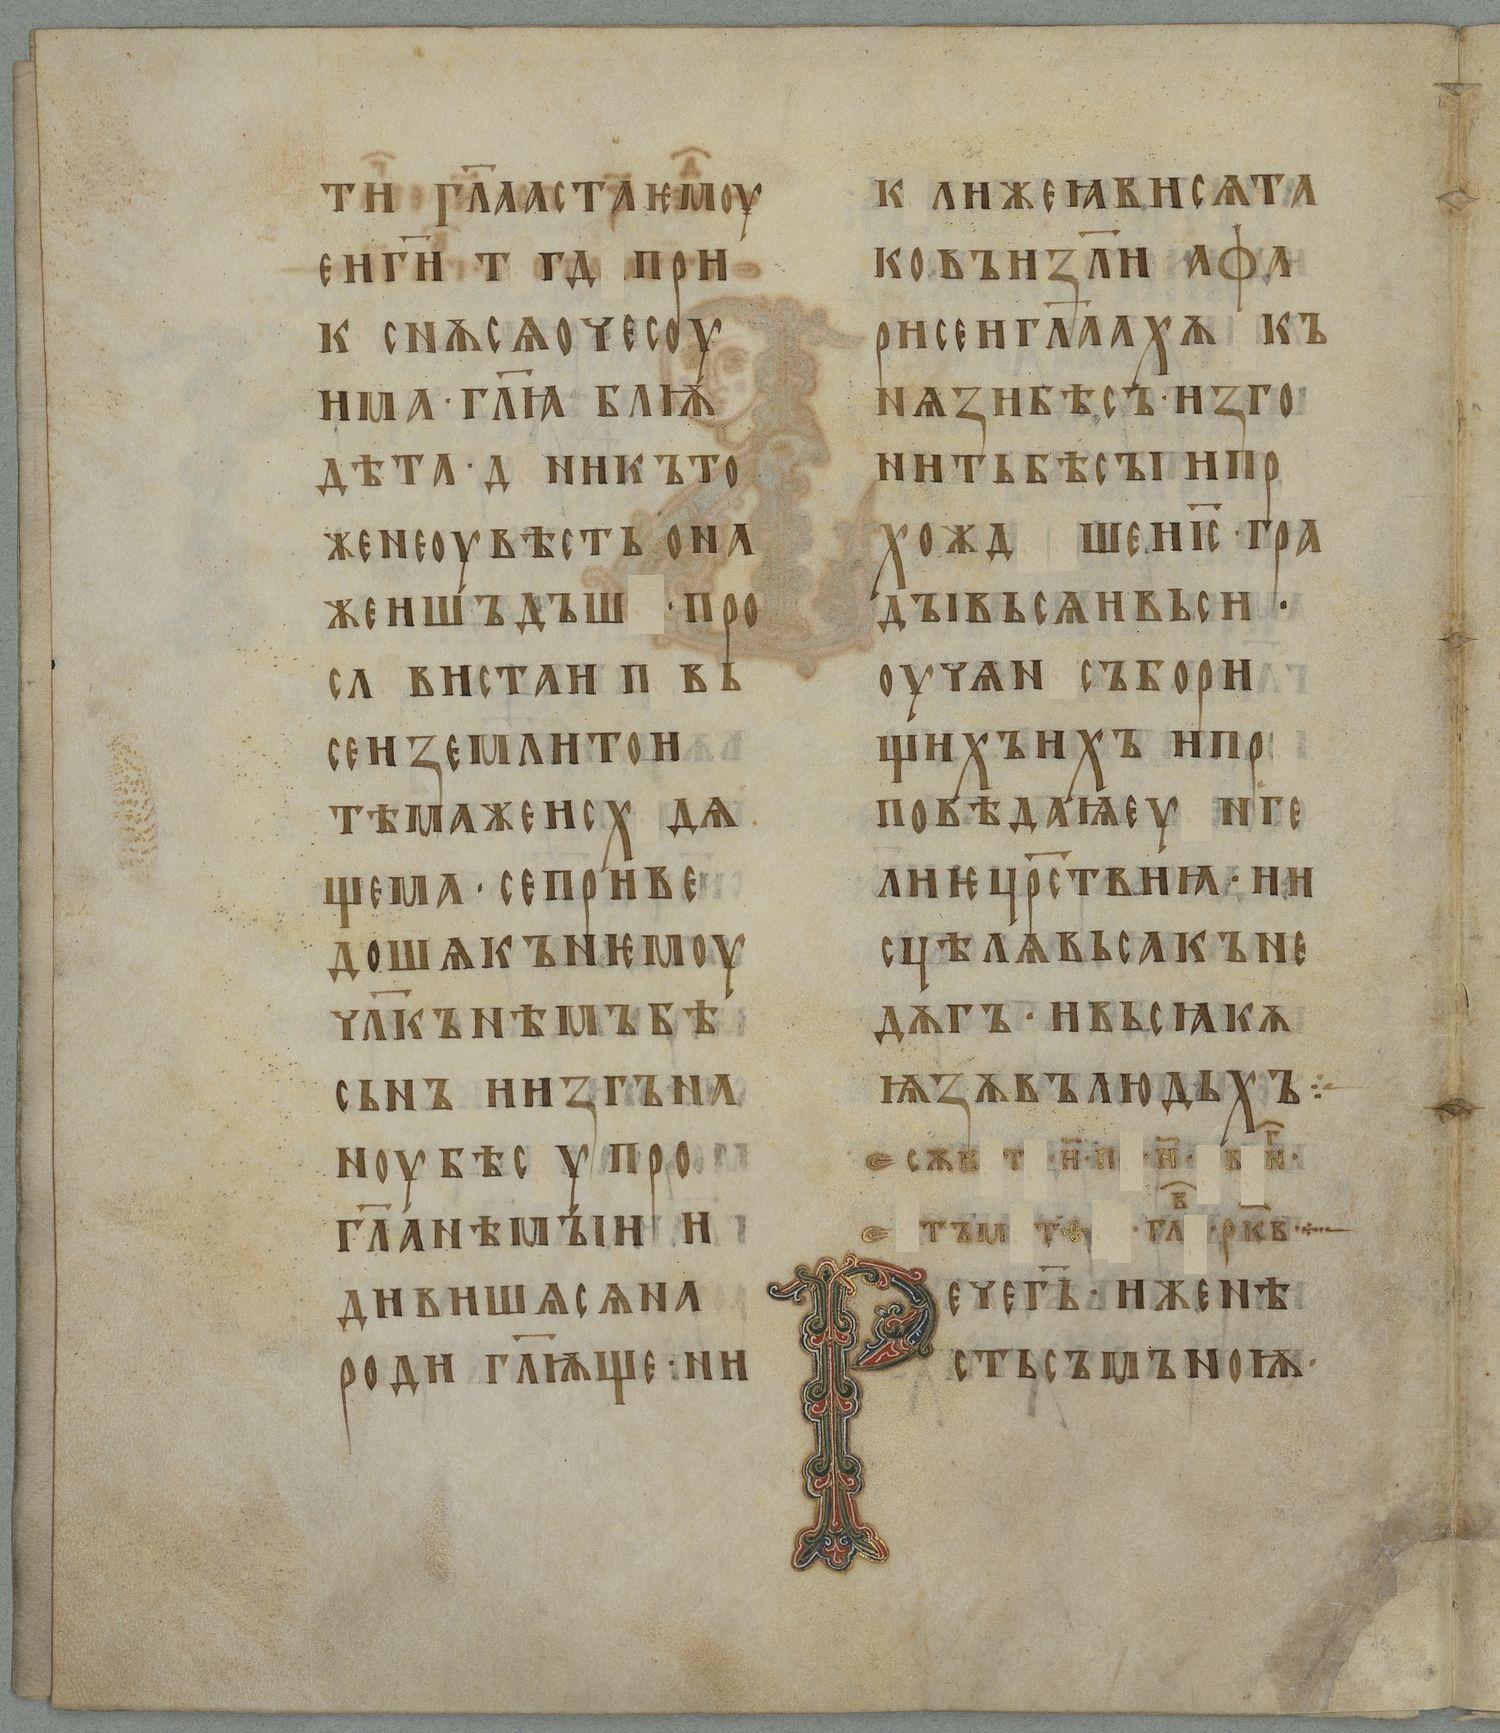 ти гл҃аастаѥмоу
еигн҃ т гд при
к снѫсѧочесоу
има · гл҃ꙗ блюѭ
дѣта · д никъто
женеоувѣсть она
женшъдъш · про
сл вистаи п вь
сеиземлитои
тѣмаженсх дѧ
щема · сепр приве
дошѧкън ѥмоу
чл҃кънѣмъбѣ
сьнъ иизгъна
ноубѣс у про
гл҃анѣмꙑи и
дивишѧсѧна
роди гл҃ѭще · ни
к лижеꙗвисѧта
ковъизл҃и афа
рисеигл҃аахѫ къ
нѧзибѣсъ · изго
нитьбѣсꙑ ипр
хожд шеиі҃с · гра
дꙑвьсѧивьси ·
оучѧи съборн
щихъихъ ипр
повѣдаѩеу нге
лиѥцр҃ствиꙗ · ии
сцѣлѧвьсакъне
дѫгъ · ивьсꙗкѫ
ѩзѫвълюдьхъ ⁘
сѫб т · н҃ · п · н҃ · в н҃ ·
тъм т · гл҃ · рк҃в ·
Речегь҃ · иженѣ
стьсъмъноѭ ·